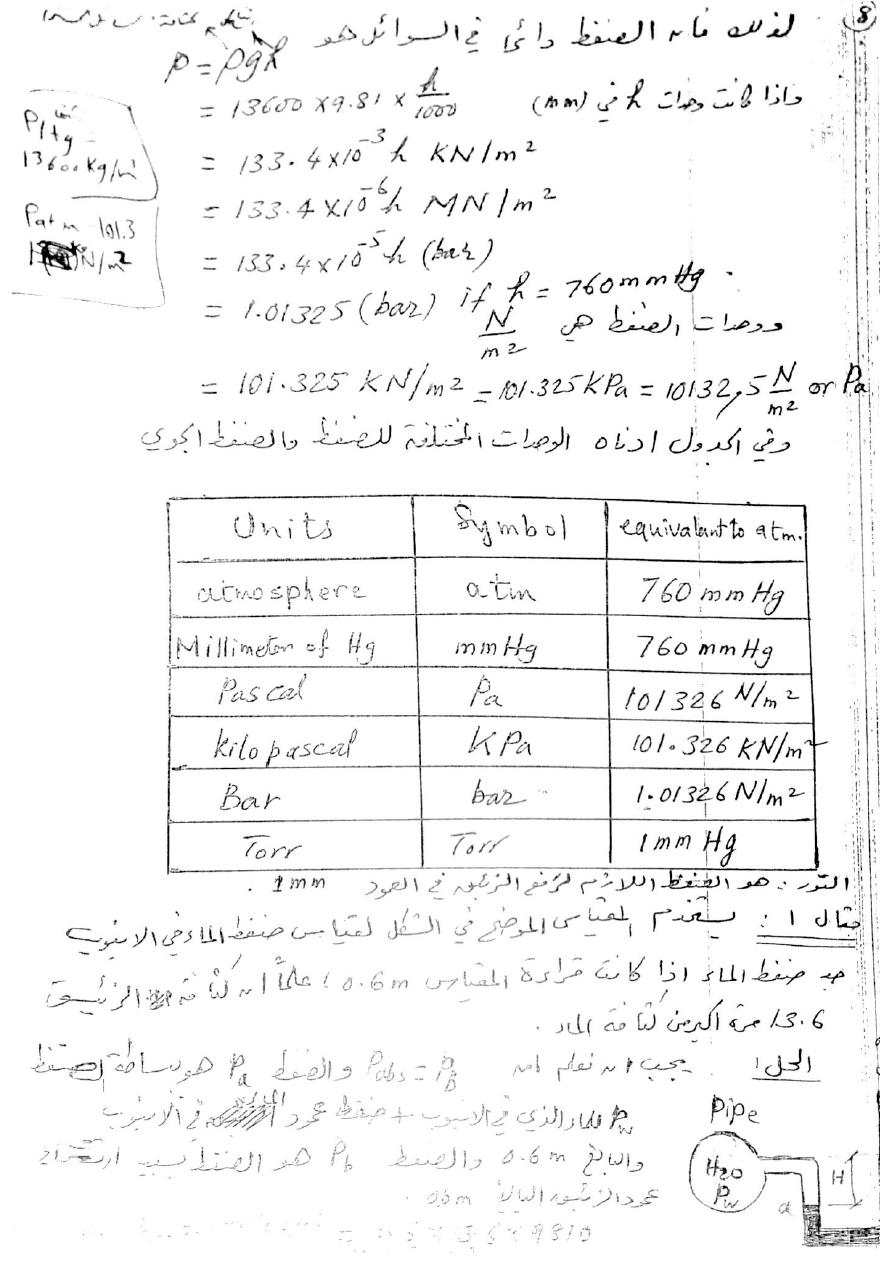 8
لذلك فانه الضغط دائما في السوائل هو
P = ρgh
واذا كانت وحدات h في (mm)
= 13600 x 9.81 x h/1000
= 133.4 x 10^-3 h KN/m²
= 133.4 x 10^-6 h MN/m²
= 133.4 x 10^-5 h (bar)
= 1.01325 (bar) if h = 760 mm Hg.
ووحدات الضغط هي N/m²
= 101.325 KN/m² = 101.325 KPa = 10132,5 N/m² or Pa
ρHg =
13600 Kg/m³
Patm 101.3
N/m²
وفي الجدول ادناه الوحدات المختلفة للضغط والضغط الجوي
Units Symbol equivalant to atm.
atmosphere atm 760 mm Hg
Millimeter of Hg mmHg 760 mmHg
Pascal Pa 101326 N/m²
kilopascal KPa 101.326 KN/m²
Bar bar 1.01326 N/m²
Torr Torr 1 mm Hg
التور : هو الضغط اللازم لرفع الزئبق في العمود 1mm .
مثال 1 : يستخدم المقياس الموضح في الشكل لقياس ضغط الماء في الانبوب
جد ضغط الماء اذا كانت قراءة المقياس 0.6m ، علماً ان كثافة الزئبق
13.6 مرة اكبر من كثافة الماء .
الحل : يجب ان نعلم ان Pabs = PB والضغط Pa هو
Pw للماء الذي في الانبوب + ضغط عمود الماء في الانبوب
والبالغ 0.6m والضغط Pb هو الضغط بسبب ارتفاع
عمود الزئبق البالغ 0.6m .
Pipe
H2O
Pw
H
a
9810